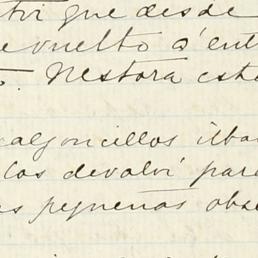 que desde
evuelto á ent
Nestora est
calzoncillos iban
los devolví para
as pequeñas obse